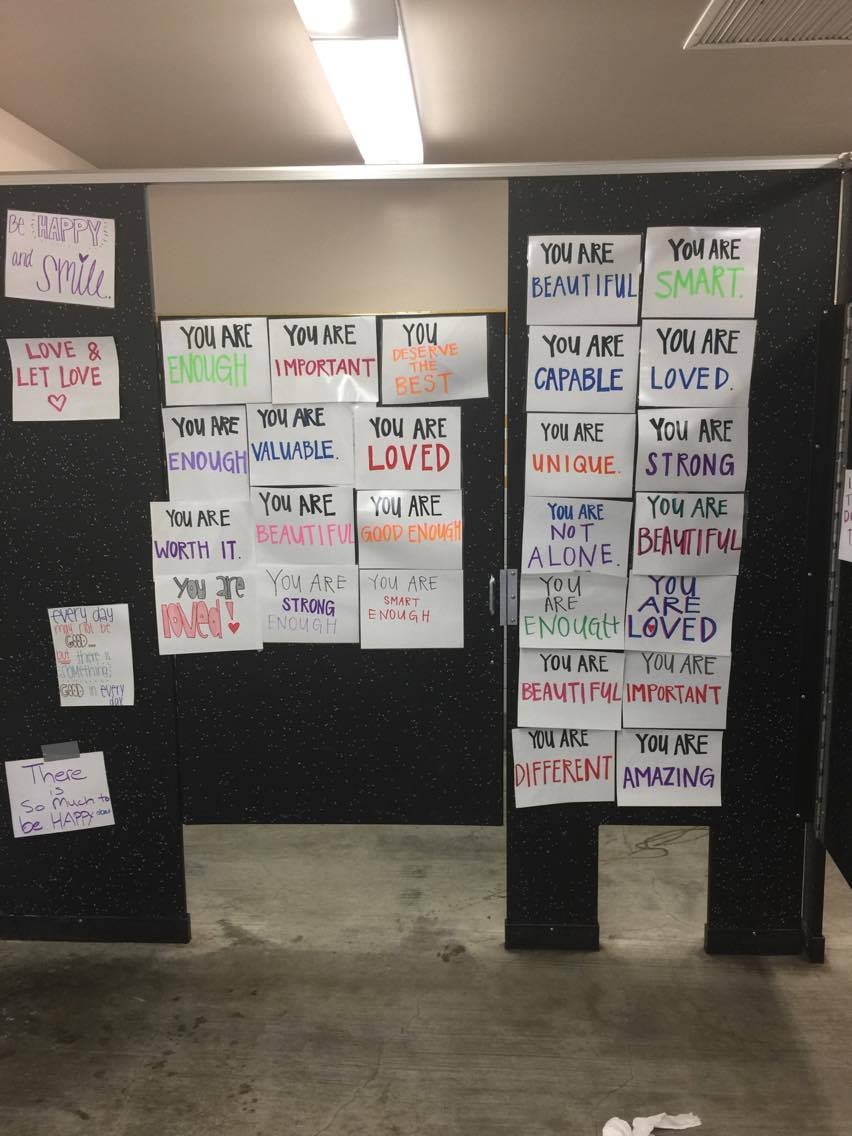 Be HAPPY
and Smile.
LOVE &
LET LOVE
every day
may not be
GOOD...
but there is
something
GOOD in every
day
There
is
So much to
be HAPPY
YOU ARE
ENOUGH
YOU ARE
IMPORTANT
YOU
DESERVE
THE
BEST
YOU ARE
ENOUGH
YOU ARE
VALUABLE.
YOU ARE
LOVED
YOU ARE
WORTH IT.
YOU ARE
BEAUTIFUL
YOU ARE
GOOD ENOUGH
You are
loved!
YOU ARE
STRONG
ENOUGH
YOU ARE
SMART
ENOUGH
YOU ARE
BEAUTIFUL
YOU ARE
SMART.
YOU ARE
CAPABLE
YOU ARE
LOVED.
YOU ARE
UNIQUE.
YOU ARE
STRONG
YOU ARE
NOT
ALONE.
YOU ARE
BEAUTIFUL
YOU
ARE
ENOUGH
YOU
ARE
LOVED
YOU ARE
BEAUTIFUL
YOU ARE
IMPORTANT
YOU ARE
DIFFERENT
YOU ARE
AMAZING